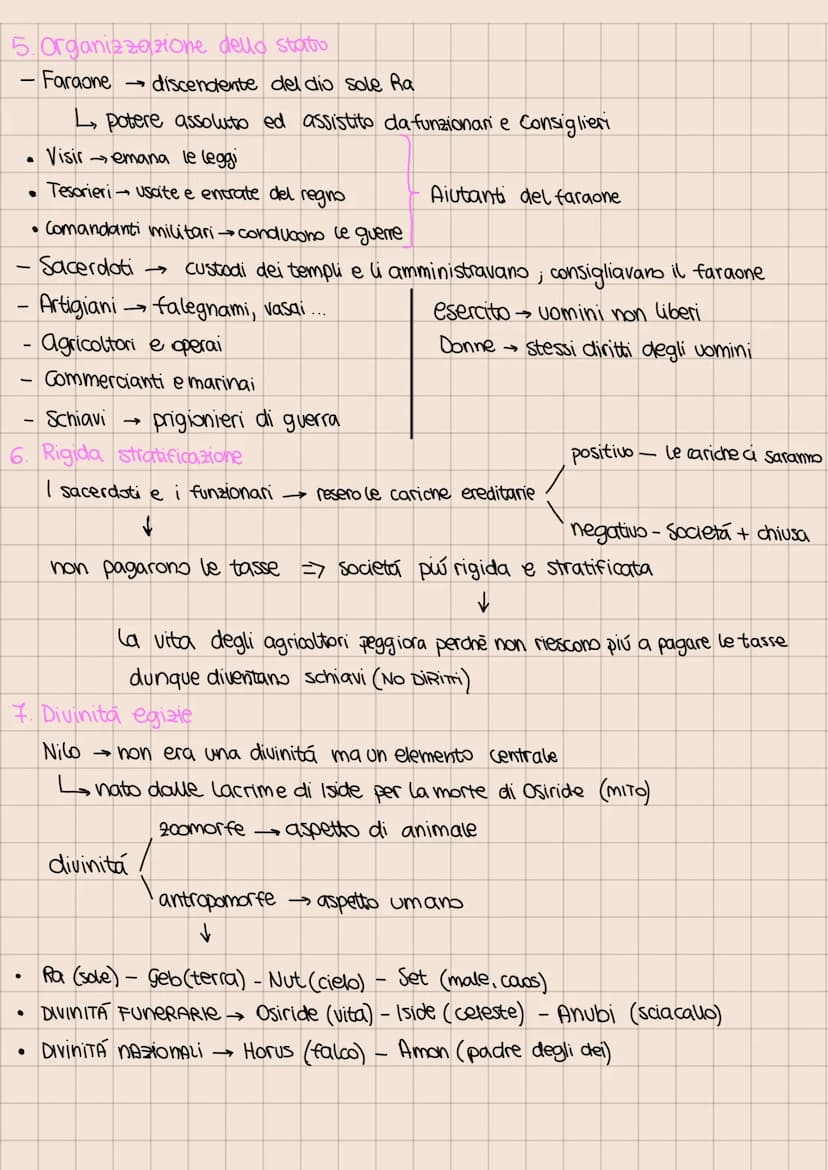 5. Organizzazione dello stato
- Faraone → discendente del dio sole Ra
↳ potere assoluto ed assistito da funzionari e Consiglieri
• Visir → emana le leggi
• Tesorieri → uscite e entrate del regno
Aiutanti del faraone
• Comandanti militari → conducono le guerre
- Sacerdoti → custodi dei templi e li amministravano ; consigliavano il faraone
- Artigiani → falegnami, vasai ...
esercito → uomini non liberi
- agricoltori e operai
Donne → stessi diritti degli uomini
- Commercianti e marinai
- Schiavi → prigionieri di guerra
6. Rigida stratificazione
positivo — le cariche ci saranno
I sacerdoti e i funzionari → resero le cariche ereditarie
↓
negativo - società + chiusa
non pagarono le tasse => societá piú rigida e stratificata
↓
la vita degli agricoltori peggiora perchè non riescono piú a pagare le tasse
dunque diventano schiavi (NO DIRITTI)
7. Divinitá egizie
Nilo → non era una divinitá ma un elemento centrale
↳ nato dalle lacrime di Iside per la morte di Osiride (MITO)
zoomorfe → aspetto di animale
divinitá
antropomorfe → aspetto umano
↓
• Ra (sole) - Geb (terra) - Nut (cielo) - Set (male, caos)
• DIVINITÁ FUNERARIE → Osiride (vita) - Iside (celeste) - Anubi (sciacallo)
• DIVINITÁ NAZIONALI → Horus (falco) - Amon (padre degli dei)